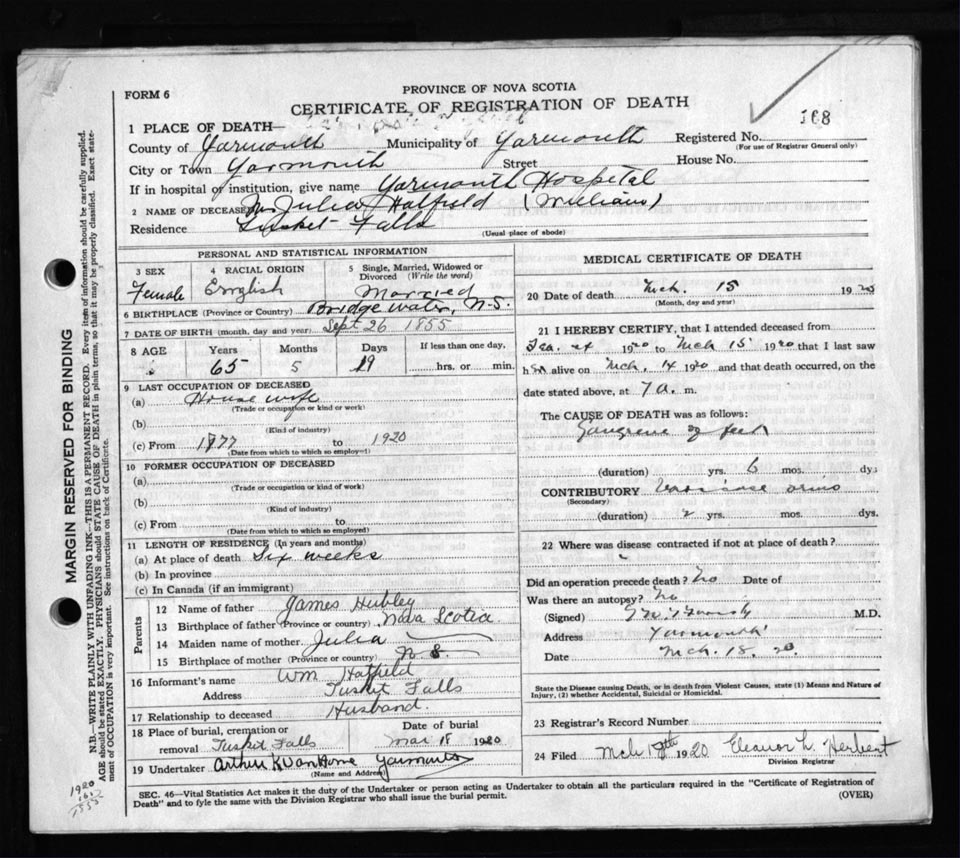 FORM 6
PROVINCE OF NOVA SCOTIA
CERTIFICATE OF REGISTRATION OF DEATH
168
1 PLACE OF DEATH—
County of Yarmouth Municipality of Yarmouth Registered No.
(For use of Registrar General only)
City or Town Yarmouth Street House No.
If in hospital or institution, give name Yarmouth Hospital
2 NAME OF DECEASED Julia Hatfield (William)
Residence Tusket Falls
(Usual place of abode)
PERSONAL AND STATISTICAL INFORMATION
3 SEX 4 RACIAL ORIGIN 5 Single, Married, Widowed or Divorced (Write the word)
Female English Married
6 BIRTHPLACE (Province or Country) Bridgewater, N.S.
7 DATE OF BIRTH (month, day and year) Sept 26 1855
8 AGE Years Months Days If less than one day,
65 5 19 hrs. or min.
9 LAST OCCUPATION OF DECEASED
(a) House wife
(Trade or occupation or kind or work)
(b)
(Kind of industry)
(c) From 1877 to 1920
(Date from which to which so employed)
10 FORMER OCCUPATION OF DECEASED
(a)
(Trade or occupation or kind of work)
(b)
(Kind of industry)
(c) From to
(Date from which to which so employed)
11 LENGTH OF RESIDENCE (In years and months)
(a) At place of death Six weeks
(b) In province
(c) In Canada (if an immigrant)
Parents
12 Name of father James Hubley
13 Birthplace of father (Province or country) Nova Scotia
14 Maiden name of mother Julia
15 Birthplace of mother (Province or country) N S.
16 Informant's name Wm Hatfield
Address Tusket Falls
17 Relationship to deceased Husband.
18 Place of burial, cremation or Date of burial
removal Tusket Falls Mar 18 1920
19 Undertaker Arthur K VanHorne Yarmouth
(Name and Address)
MEDICAL CERTIFICATE OF DEATH
20 Date of death Mch. 15 1920
(Month, day and year)
21 I HEREBY CERTIFY, that I attended deceased from
1920 to Mch 15 1920 that I last saw
her alive on Mch. 14 1920 and that death occurred, on the
date stated above, at 7 a. m.
The CAUSE OF DEATH was as follows:
Gangrene of feet
(duration) yrs. 6 mos. dys
CONTRIBUTORY
(Secondary)
(duration) 2 yrs. mos. dys.
22 Where was disease contracted if not at place of death?
Did an operation precede death? No Date of
Was there an autopsy? No
(Signed) M.D.
Address Yarmouth
Date Mch. 18. 20.
State the Disease causing Death, or in death from Violent Causes, state (1) Means and Nature of
Injury, (2) whether Accidental, Suicidal or Homicidal.
23 Registrar's Record Number
24 Filed Mch 1920 Eleanor L. Herbert
Division Registrar
SEC. 46—Vital Statistics Act makes it the duty of the Undertaker or person acting as Undertaker to obtain all the particulars required in the "Certificate of Registration of
Death" and to fyle the same with the Division Registrar who shall issue the burial permit. (OVER)
MARGIN RESERVED FOR BINDING
N.B.—WRITE PLAINLY WITH UNFADING INK—THIS IS A PERMANENT RECORD. Every item of information should be carefully supplied.
AGE should be stated EXACTLY. PHYSICIANS should STATE CAUSE OF DEATH in plain terms, so that it may be properly classified. Exact state-
ment of OCCUPATION is very important. See instructions on back of Certificate.
1920